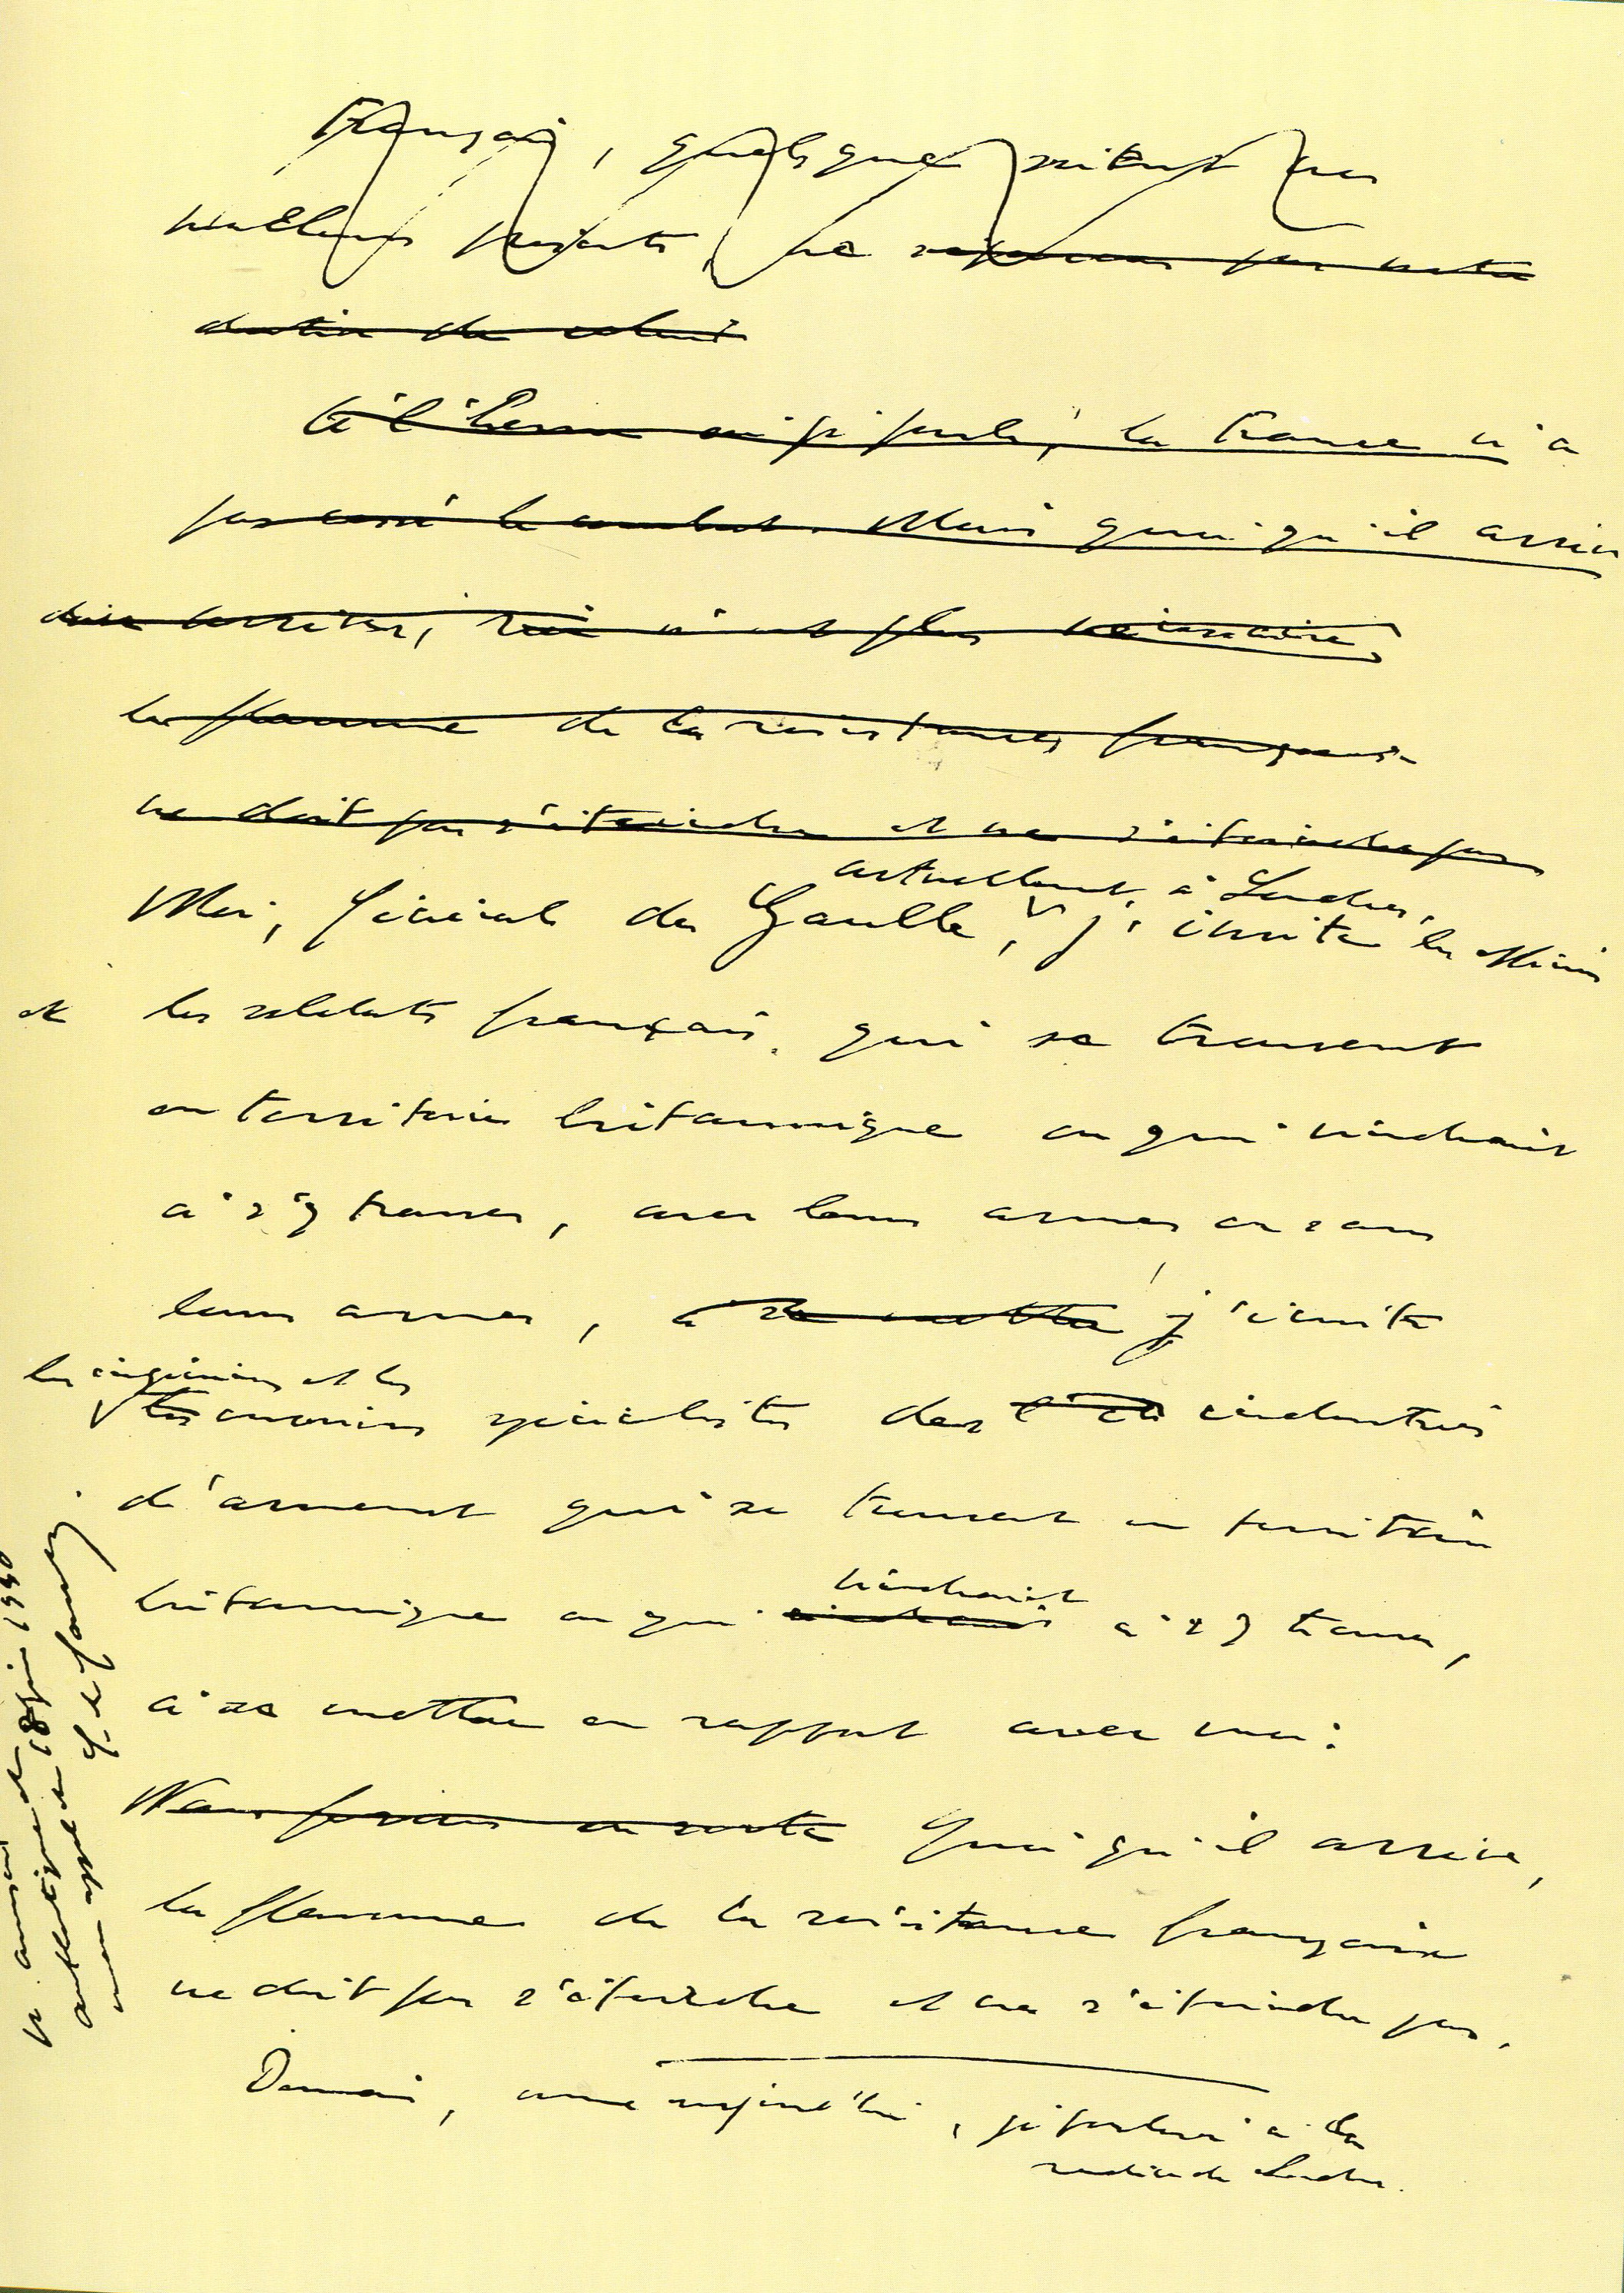 Français, quels que soient vos
malheurs présents, ne reposez pas votre
destin de celui
A l'heure où je parle, la France n'a
pas cessé le combat. Mais quoi qu'il arrive
dans, rien n'est plus nécessaire,
la flamme de la résistance française
ne doit pas s'éteindre et ne s'éteindra pas
actuellement à Londres,
Moi, Général de Gaulle, j'invite les officiers
et les soldats français qui se trouvent
en territoire britannique ou qui viendraient
à s'y trouver, avec leurs armes ou sans
leurs armes, à se mettre j'invite
les ingénieurs et les
les ouvriers spécialistes des industries
d'armement qui se trouvent en territoire
viendraient
britannique ou qui viendraient à s'y trouver,
à se mettre en rapport avec moi.
Quoi qu'il arrive,
la flamme de la résistance française
ne doit pas s'éteindre et ne s'éteindra pas.
Demain, comme aujourd'hui, je parlerai à la
radio de Londres.
manuscrit
authentique de
mon appel du 18 juin 1940
C. de Gaulle